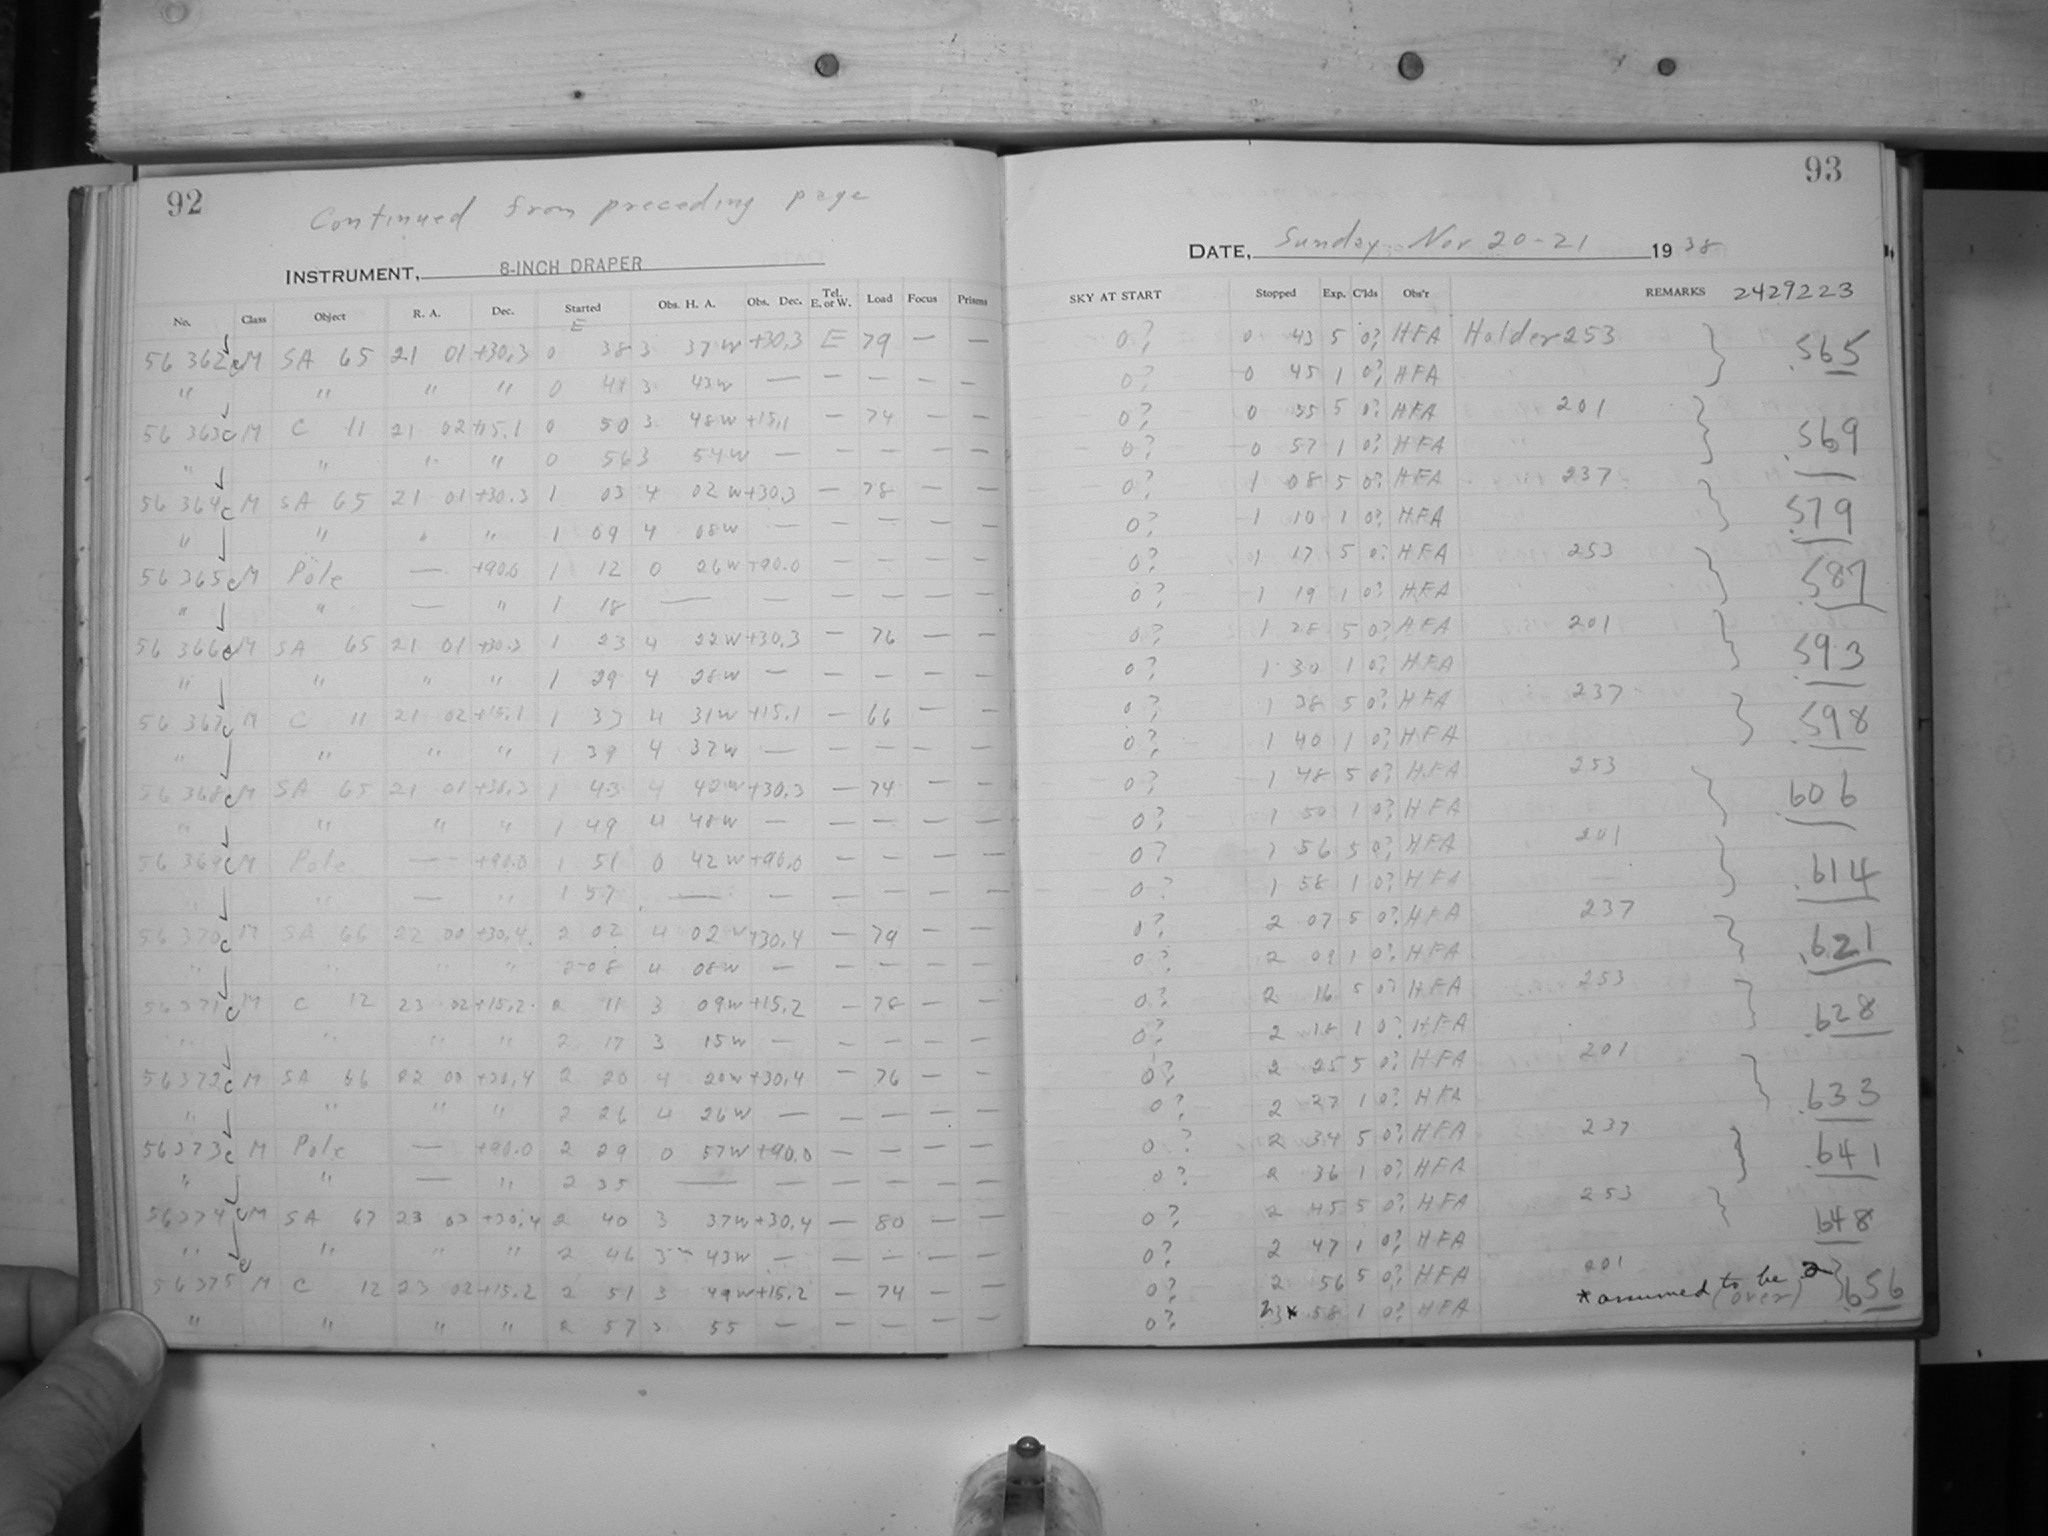 92
Continued from preceding page
INSTRUMENT, 8-INCH DRAPER
No. Class Object R. A. Dec. Started Obs. H. A. Obs. Dec. Tel. E. or W. Load Focus Prisms
E
56 362 M SA 65 21 01 +30.3 0 38 3 37W +30.3 E 79 — —
" " " " 0 44 3 43W — — — — —
56 363 M C 11 21 02 +15.1 0 50 3 48W +15.1 — 74 — —
" " " " 0 56 3 54W — — — — —
56 364 M SA 65 21 01 +30.3 1 03 4 02W +30.3 — 78 — —
" " " " 1 09 4 08W — — — — —
56 365 M Pole — +90.0 1 12 0 26W +90.0 — — — —
" " — " 1 18 — — — — — —
56 366 M SA 65 21 01 +30.3 1 23 4 22W +30.3 — 76 — —
" " " " 1 29 4 28W — — — — —
56 367 M C 11 21 02 +15.1 1 33 4 31W +15.1 — 66 — —
" " " " 1 39 4 37W — — — — —
56 368 M SA 65 21 01 +30.3 1 43 4 42W +30.3 — 74 — —
" " " " 1 49 4 48W — — — — —
56 369 M Pole — +90.0 1 51 0 42W +90.0 — — — —
" " — " 1 57 — — — — — —
56 370 M SA 66 22 00 +30.4 2 02 4 02W +30.4 — 79 — —
" " " " 2 08 4 08W — — — — —
56371 M C 12 23 02 +15.2 2 11 3 09W +15.2 — 78 — —
" " " " 2 17 3 15W — — — — —
56372 M SA 66 22 00 +30.4 2 20 4 20W +30.4 — 76 — —
" " " " 2 26 4 26W — — — — —
56373 M Pole — +90.0 2 29 0 57W +90.0 — — — —
" " — " 2 35 — — — — — —
56374 M SA 67 23 03 +30.4 2 40 3 37W +30.4 — 80 — —
" " " " 2 46 3 43W — — — — —
56375 M C 12 23 02 +15.2 2 51 3 49W +15.2 — 74 — —
" " " " 2 57 3 55 — — — — —
93
DATE, Sunday Nov 20-21 1938
SKY AT START Stopped Exp. C'lds Obs'r REMARKS 2429223
0? 0 43 5 0? HFA Holder 253 .565
0? 0 45 1 0? HFA
0? 0 55 5 0? HFA 201 .569
0? 0 57 1 0? HFA
0? 1 08 5 0? HFA 237 .579
0? 1 10 1 0? HFA
0? 1 17 5 0? HFA 253 .587
0? 1 19 1 0? HFA
0? 1 28 5 0? HFA 201 .593
0? 1 30 1 0? HFA
0? 1 38 5 0? HFA 237 .598
0? 1 40 1 0? HFA
0? 1 48 5 0? HFA 253 .606
0? 1 50 1 0? HFA
0? 1 56 5 0? HFA 201 .614
0? 1 58 1 0? HFA
0? 2 07 5 0? HFA 237 .621
0? 2 09 1 0? HFA
0? 2 16 5 0? HFA 253 .628
0? 2 18 1 0? HFA
0? 2 25 5 0? HFA 201 .633
0? 2 27 1 0? HFA
0? 2 34 5 0? HFA 237 .641
0? 2 36 1 0? HFA
0? 2 45 5 0? HFA 253 .648
0? 2 47 1 0? HFA
0? 2 56 5 0? HFA 201 .656
0? 58 1 0? HFA *assumed to be 2 (over)